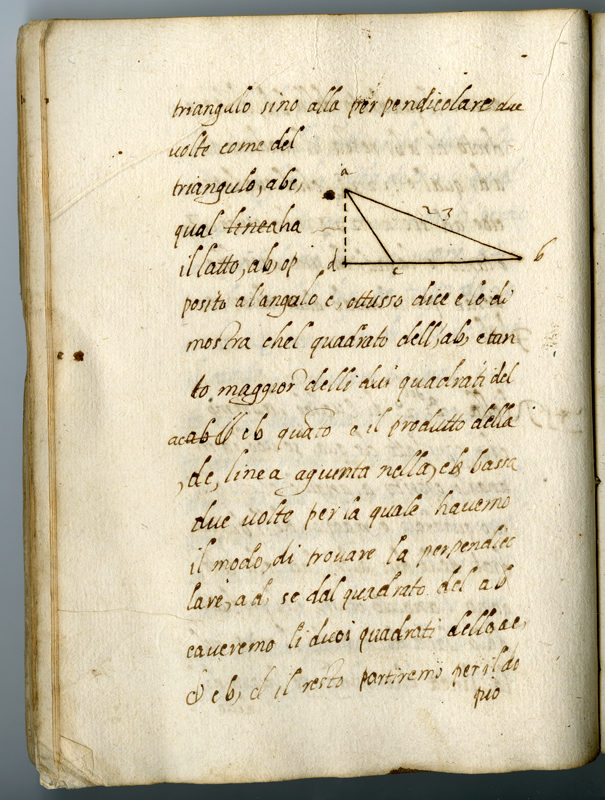 triangulo sino alla perpendicolare due
volte come del
triangulo, abc,
qual linea ha
il latto, ab, op
posito al'angulo c, ottusso dice e lo di
mostra chel quadrato dell, ab, e tan
to maggior delli dui quadrati del
ac ab & cb quāto e il produtto della
, dc, linea agiunta nella, cb bassa
due volte per la quale havemo
il modo, di trovare la perpendic
lare, ad, se dal quadrato del ab
caveremo li duoi quadrati dello ac,
& cb, et il resto partiremo per il do
pio
a
23
d
c
b